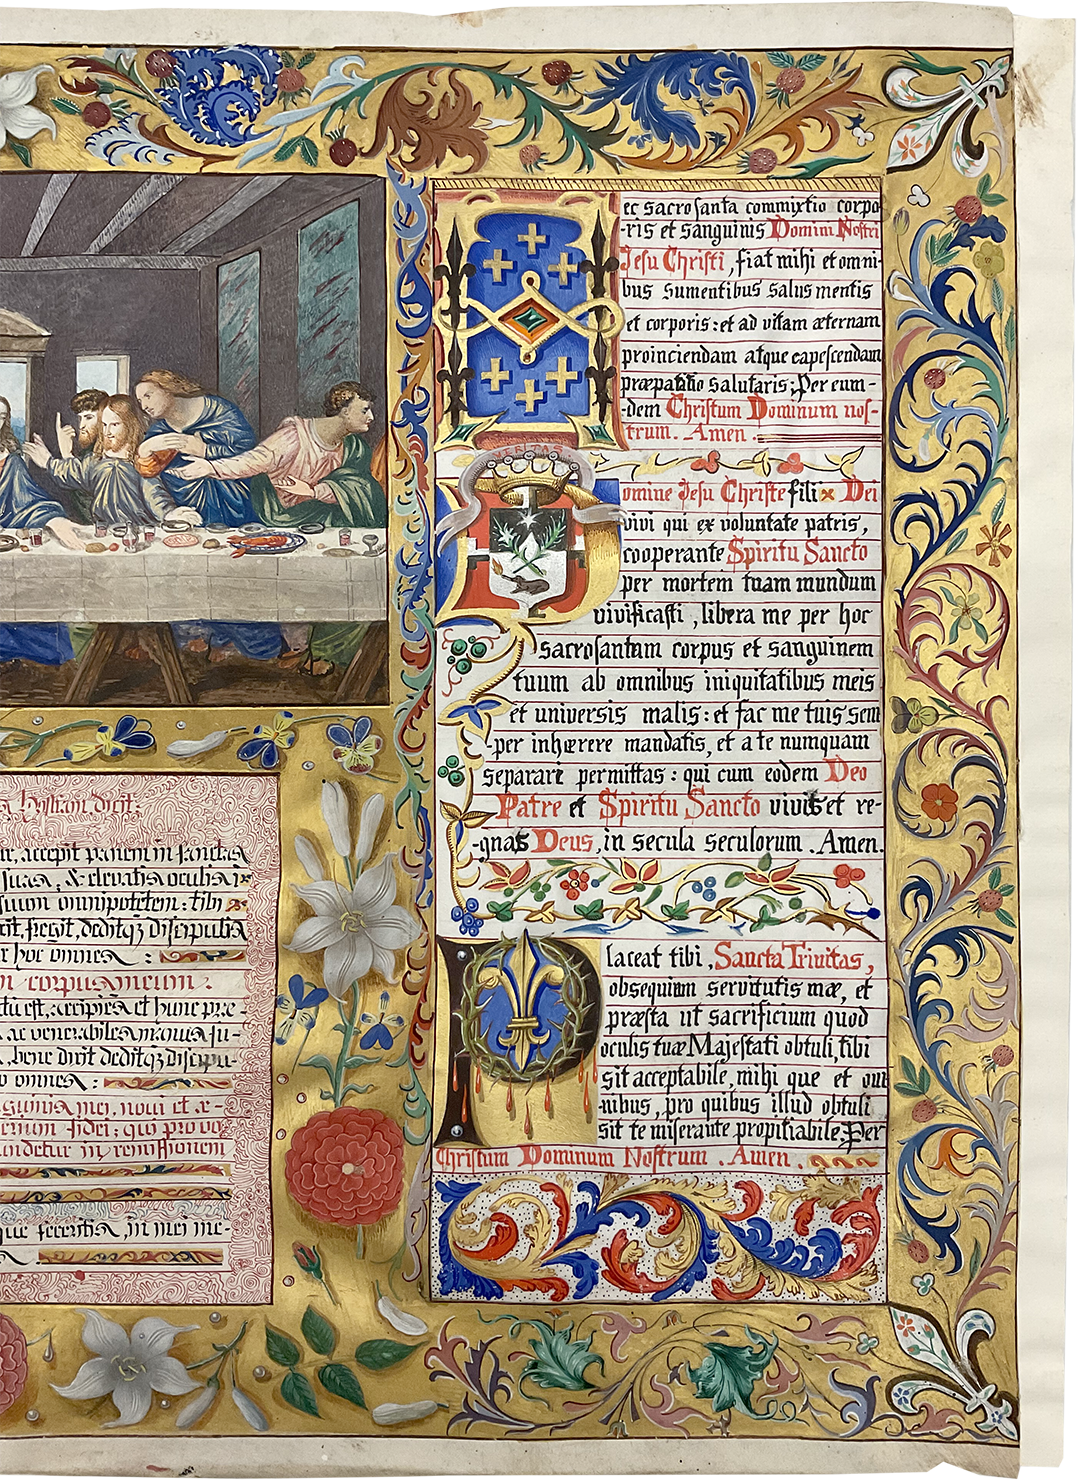 Hostiam dicit:
accepit panem in sanctas
suas, & elevatis oculis in
suum omnipotetem : tibi
fregit, deditqȝ Discipulis
hoc omnes :
corpus meum :
est, accipies et hunc præ-
ac venerabiles manus su-
bene dixit deditqȝ discipu-
omnes :
mei, noui et æ-
fidei; qui pro vo
in remissionem
que feceritis, in mei me-
Hec sacrosanta commixtio corpo
-ris et sanguinis Domini Nostri
Jesu Christi, fiat mihi et omni-
bus sumentibus salus mentis
et corporis : et ad vitam æternam
proinciendam atque capescendam
præpatatio salutaris; Per eum-
-dem Christum Dominum nos-
trum. Amen.
Domine Jesu Christe fili Dei
vivi qui ex voluntate patris,
cooperante Spiritu Sancto
per mortem tuam mundum
vivificasti, libera me per hoc
sacrosantum corpus et sanguinem
tuum ab omnibus iniquitatibus meis
et universis malis : et fac me tuis sem
-per inhærere mandatis, et a te numquam
separari permittas : qui cum eodem Deo
Patre et Spiritu Sancto vivis et re-
-gnas Deus, in secula seculorum . Amen.
Placeat tibi, Sancta Trinitas,
obsequium servitutis mæ, et
præsta ut sacrificium quod
oculis tuæ Majestati obtuli, tibi
sit acceptabile, mihi que et om
-nibus, pro quibus illud obtuli
sit te miserante propitiabile. Per
Christum Dominum Nostrum . Amen.